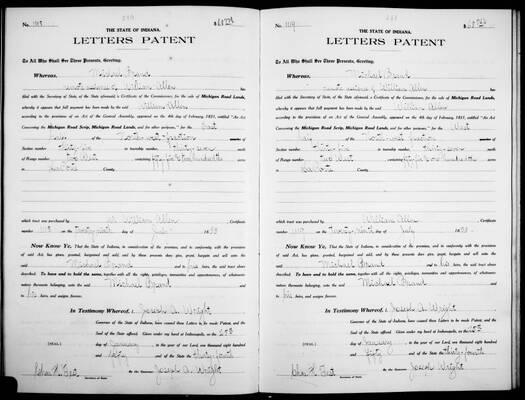 No. 1118
THE STATE OF INDIANA.
LETTERS PATENT
To All Who Shall See These Presents, Greeting:
Whereas, Michael Brand
assignee of William Allen has
filed with the Secretary of State, of the State aforesaid, a Certificate of the Commissioner, for the sale of Michigan Road Lands,
whereby it appears that full payment has been made by the said William Allen
according to the provisions of an Act of the General Assembly, approved the 4th day of February, 1831, entitled "An Act
Concerning the Michigan Road Scrip, Michigan Road Lands, and for other purposes," for the East
half of the North west fraction quarter of
Section number Thirty five in township number Thirty seven north
of Range number two West containing
in La Porte County
which tract was purchased by William Allen, Certificate
number 1118 on the Twenty ninth day of July 1835
Now Know Ye, That the State of Indiana, in consideration of the premises, and in conformity with the provisions
of said Act, has given, granted, bargained and sold, and by these presents they give, grant, bargain and sell unto the
said Michael Brand and his heirs, the said tract above
described. To have and to hold the same, together with all the rights, privileges, immunities and appurtenances, of whatsoever
nature thereunto belonging, unto the said Michael Brand and
to his heirs, and assigns forever.
In Testimony Whereof, I, Joseph A. Wright
Governor of the State of Indiana, have caused these Letters to be made Patent, and the
Seal of the State affixed. Given under my hand at Indianapolis, on the 2nd
[SEAL] day of January in the year of our Lord, one thousand eight hundred
and fifty and of the State the thirty fourth
By the Governor: Joseph A. Wright
Secretary of State.
No. 1119
THE STATE OF INDIANA.
LETTERS PATENT
To All Who Shall See These Presents, Greeting:
Whereas, Michael Brand
assignee of William Allen has
filed with the Secretary of State, of the State aforesaid, a Certificate of the Commissioner, for the sale of Michigan Road Lands,
whereby it appears that full payment has been made by the said William Allen
according to the provisions of an Act of the General Assembly, approved the 4th day of February, 1831, entitled "An Act
Concerning the Michigan Road Scrip, Michigan Road Lands, and for other purposes," for the West
half of the North west fraction quarter of
Section number Thirty five in township number Thirty seven north
of Range number two West containing
in La Porte County
which tract was purchased by William Allen, Certificate
number 1119 on the Twenty ninth day of July 1835
Now Know Ye, That the State of Indiana, in consideration of the premises, and in conformity with the provisions
of said Act, has given, granted, bargained and sold, and by these presents they give, grant, bargain and sell unto the
said Michael Brand and his heirs, the said tract above
described. To have and to hold the same, together with all the rights, privileges, immunities and appurtenances, of whatsoever
nature thereunto belonging, unto the said Michael Brand and
to his heirs, and assigns forever.
In Testimony Whereof, I, Joseph A. Wright
Governor of the State of Indiana, have caused these Letters to be made Patent, and the
Seal of the State affixed. Given under my hand at Indianapolis, on the 2nd
[SEAL] day of January in the year of our Lord, one thousand eight hundred
and fifty and of the State the thirty fourth
By the Governor: Joseph Wright
Secretary of State.